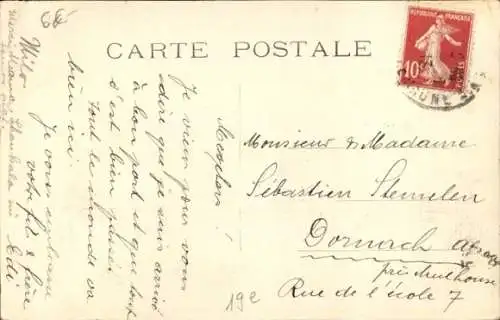 6€
CARTE POSTALE
RÉPUBLIQUE FRANÇAISE
10
POSTES
Je viens pour vous
dire que je suis arrivé
à bon port et que tout
s'est bien passé.
Tout le monde va
bien ici
Je vous embrasse
votre fils & frère
Edi
Milo
Monsieur & Madame
Sébastien Stemelen
Dornach Alsace
près Mulhouse
Rue de l'école 7
19e